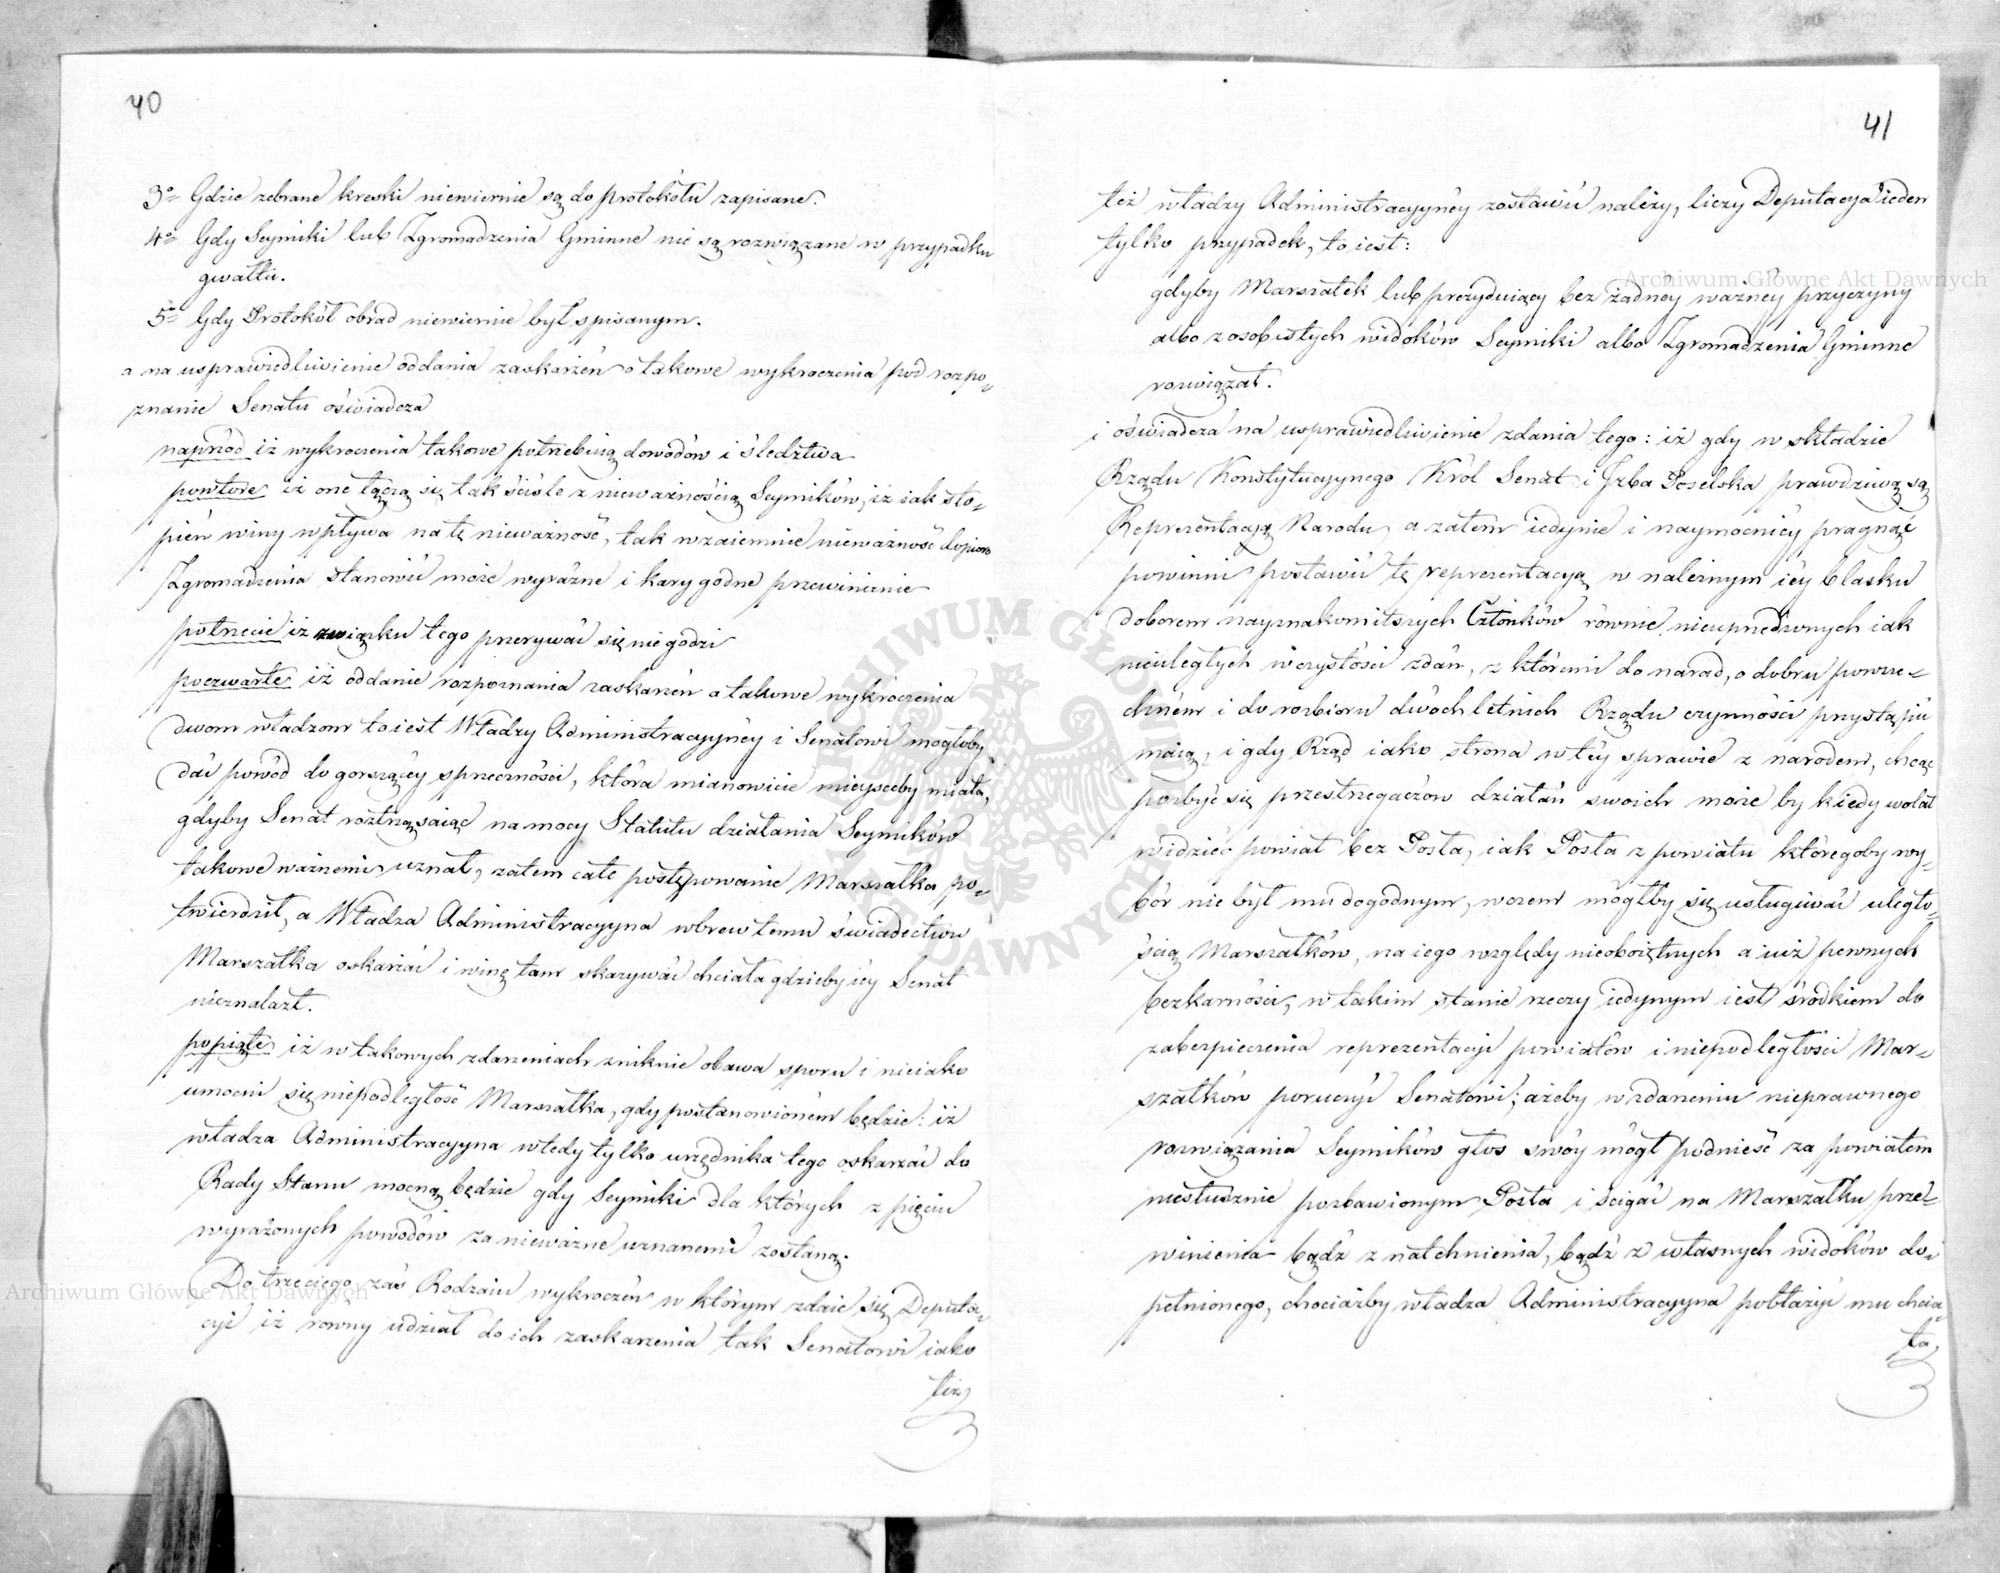 40
3º Gdzie zebrane kreski niewiernie są do protokółu zapisane.
4º Gdy Seymiki lub Zgromadzenia Gminne nie są rozwiązane w przypadku
gwałtu.
5º Gdy Protokół obrad niewiernie był spisanym.
a na usprawiedliwienie oddania zaskarżeń o takowe wykroczenia pod rozpo-
znanie Senatu oświadcza
naprzód iż wykroczenia takowe potrzebuią dowodów i śledztwa
powtóre iż one łączą się tak ściśle z nieważnością Seymików, iż iak sto-
pień winy wpływa na tę nieważność, tak wzaiemnie nieważność dopiero
Zgromadzenia stanowić może wyraźne i kary godne przewinienie
potrzecie iż związku tego przerywać się nie godzi
poczwarte iż oddanie rozpoznania zaskarżeń o takowe wykroczenia
dwom władzom to iest Władzy Administracyyney i Senatowi mogłoby
dać powód do gorszącey sprzeczności, która mianowicie mieysceby miała,
gdyby Senat roztrząsaiąc na mocy Statutu działania Seymików
takowe ważnemi uznał, zatem całe postępowanie Marszałka po-
twierdził, a Władza Administracyyna wbrew temu świadectwu
Marszałka oskarżać i winę tam skazywać chciała gdzieby iey Senat
nieznalazł.
popiąte iż w takowych zdarzeniach zniknie obawa sporu i nieiako
umocni się niepodległość Marszałka, gdy postanowioném będzie: iż
władza Administracyyna wtedy tylko urzędnika tego oskarżać do
Rady Stanu mocną będzie gdy Seymiki dla których z pięciu
wyrażonych powodów za nieważne uznanemi zostaną.
Do trzeciego zaś Rodzaiu wykroczeń w którym zdaie się Deputa-
cyi iż równy udział do ich zaskarżenia tak Senatowi iako
też
41
też władzy Administracyyney zostawić należy, liczy Deputacya ieden
tylko przypadek, to iest:
gdyby Marszałek lub prezyduiący bez żadney ważney przyczyny
albo z osobistych widoków Seymiki albo Zgromadzenia Gminne
rozwiązał.
i oświadcza na usprawiedliwienie zdania tego: iż gdy w składzie
Rządu Konstytucyynego Król Senat i Izba Poselska prawdziwą są
Reprezentacyą Narodu, a zatem iedynie i naymocniey pragnąć
powinni postawić tę reprezentacyą w należnym iey blasku
doborem nayznakomitszych Członków równie nieuprzedzonych iak
nieuległych w czystości zdań, z któremi do narad, o dobru powsze-
chném i do rozbioru dwóchletnich Rządu czynności przystąpić
maią, i gdy Rząd iako strona w tey sprawie z narodem, chcąc
pozbyć się przestrzegaczów działań swoich może by kiedy wolał
widzieć powiat bez Posła, iak Posła z powiatu któregoby wy-
bór nie był mu dogodnym, w czem mógłby się usługiwać uległo-
ścią Marszałków, na iego względy nieoboiętnych a iuż pewnych
bezkarności, w takim stanie rzeczy iedynym iest środkiem do
zabezpieczenia reprezentacyi powiatów i niepodległości Mar-
szałków poruczyć Senatowi; ażeby w zdarzeniu nieprawnego
rozwiązania Seymików głos swóy mógł podnieść za powiatem
niesłusznie pozbawionym Posła i ścigać na Marszałku prze-
winienia bądź z natchnienia, bądź z własnych widoków do-
pełnionego, chociażby władza Administracyyna pobłażyć mu chcia-
ła,
Archiwum Główne Akt Dawnych
Archiwum Główne Akt Dawnych
ARCHIWUM GŁÓWNE AKT DAWNYCH